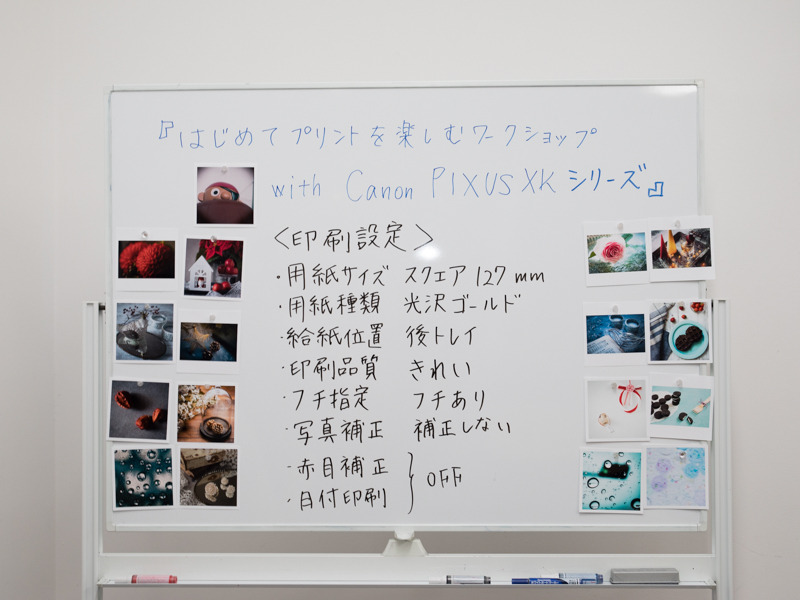 『はじめてプリントを楽しむワークショップ
with Canon PIXUS XK シリーズ』
<印刷設定>
・用紙サイズ スクエア 127mm
・用紙種類 光沢ゴールド
・給紙位置 後トレイ
・印刷品質 きれい
・フチ指定 フチあり
・写真補正 補正しない
・赤目補正
・日付印刷
OFF